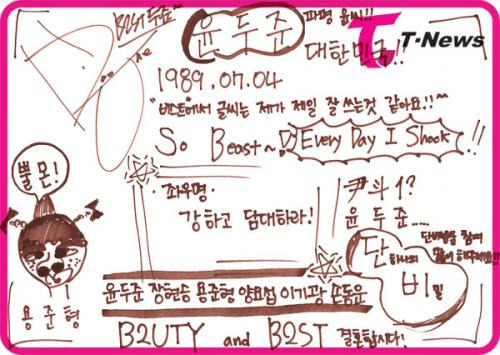 B2ST 두준~
윤두준
파평 윤씨!!
대한민국!!
T-News
1989.07.04
"비스트에서 글씨는 제가 제일 잘 쓰는것 같아요!!~"
So Beast~ Every Day I Shock !!
뿔몬!
좌우명.
강하고 담대하라!
尹斗1?
윤두준.....
단 하나의
비밀
단비밀을 함께
용준형
윤두준 장현승 용준형 양요섭 이기광 손동운
B2UTY and B2ST 결혼합시다!